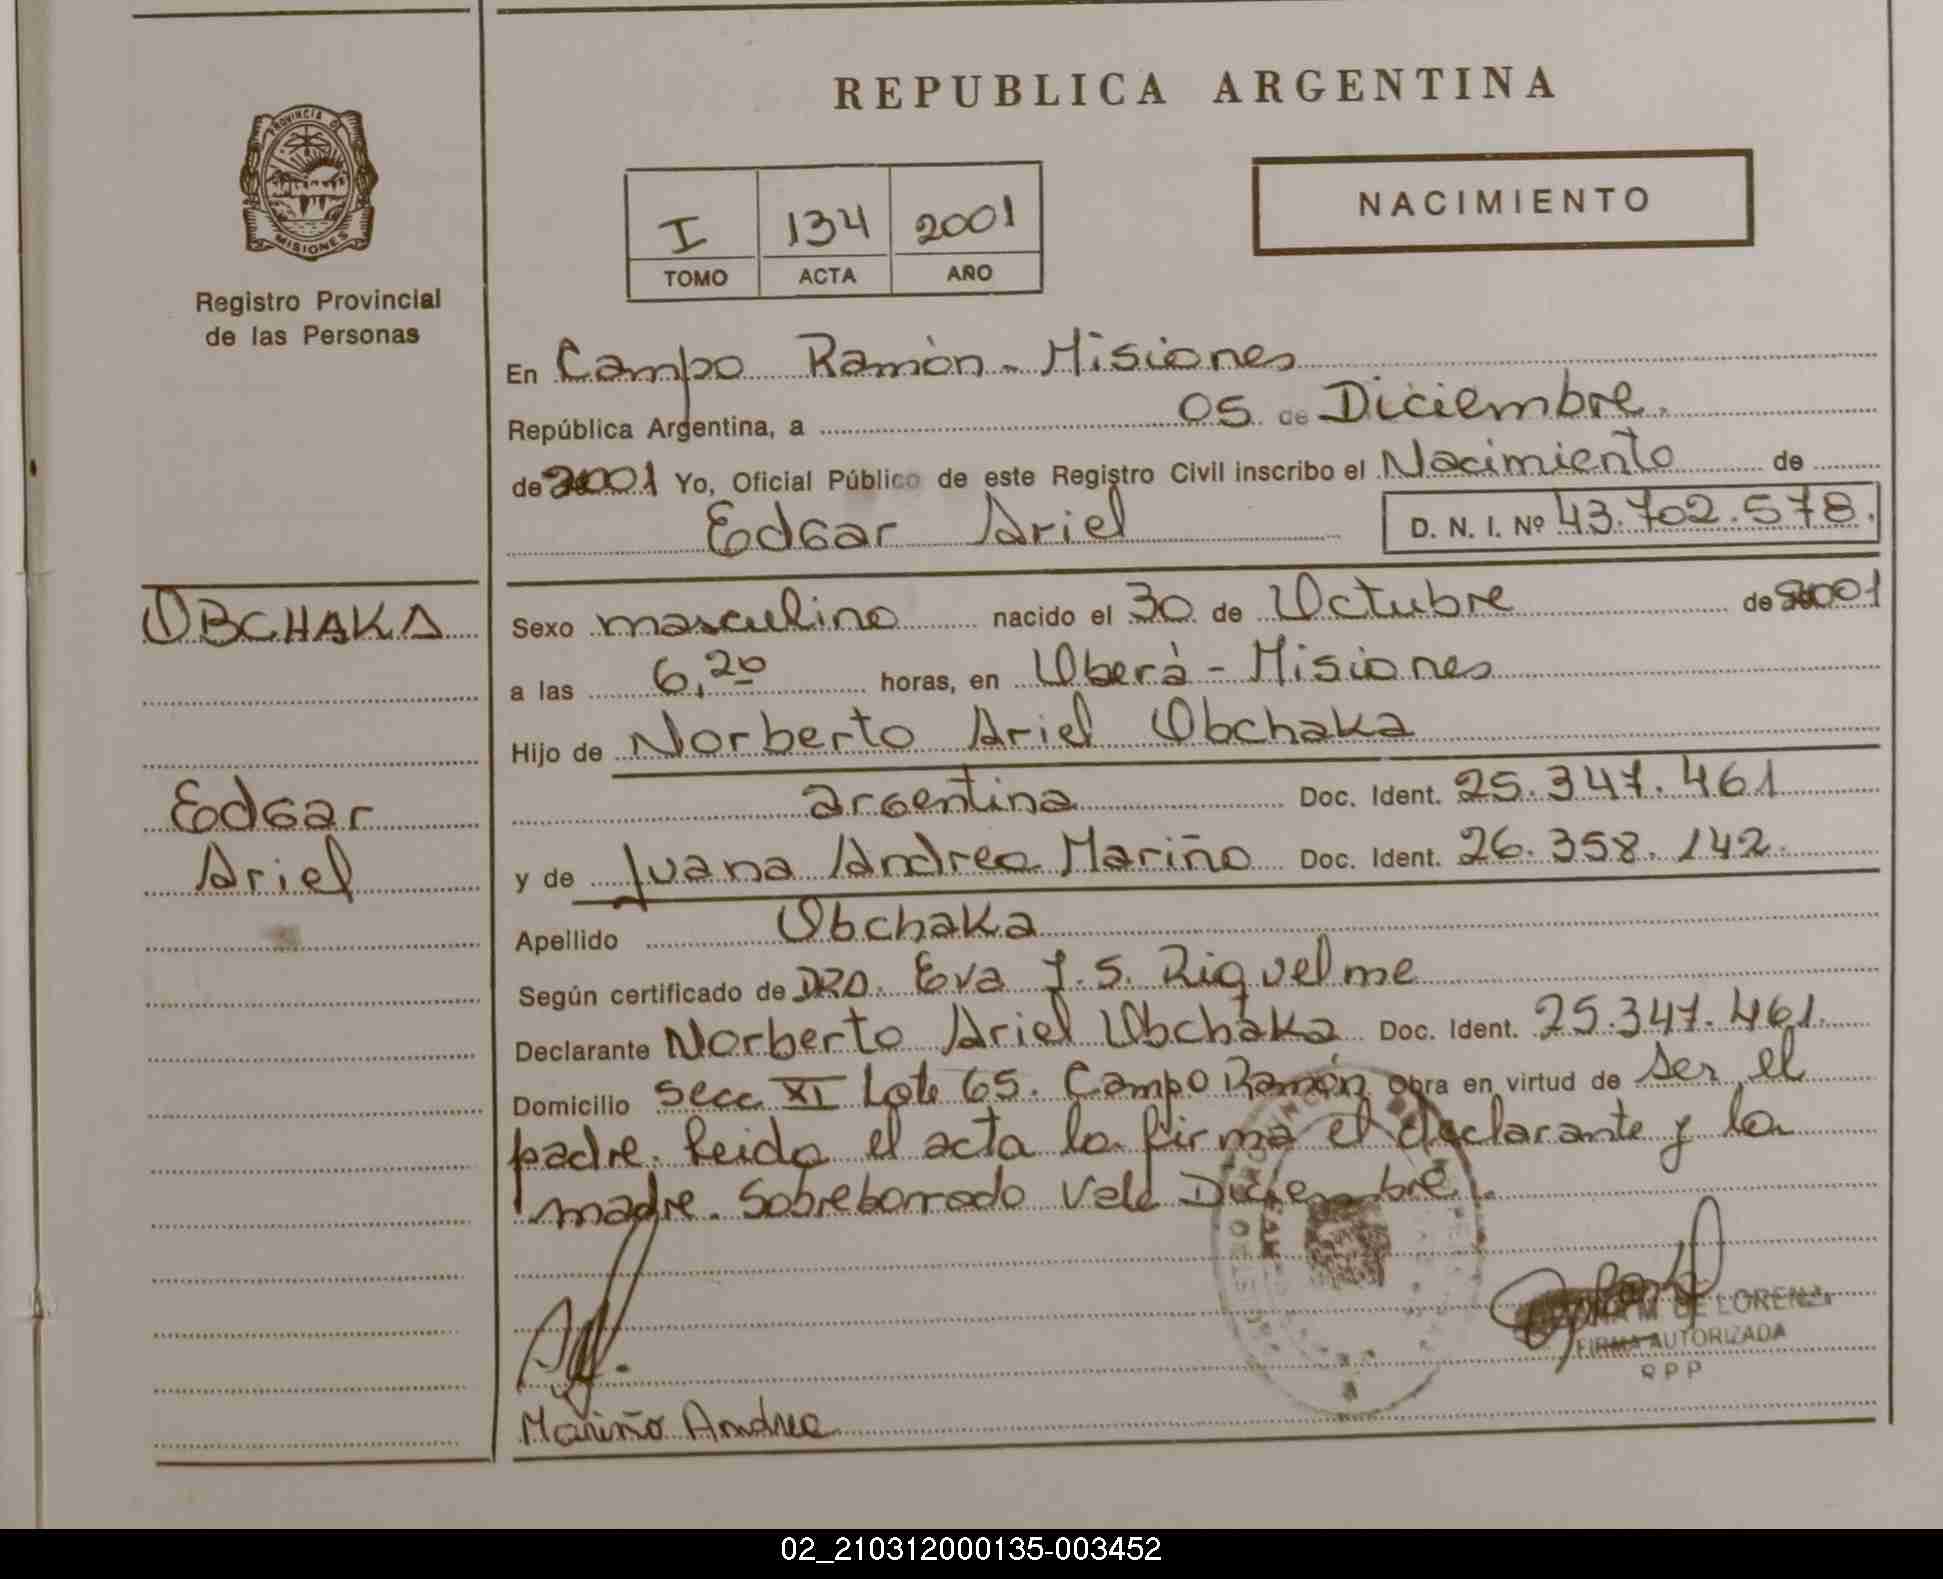 REPUBLICA ARGENTINA
PROVINCIA DE
MISIONES
Registro Provincial
de las Personas
I 134 2001
TOMO ACTA AÑO
NACIMIENTO
En Campo Ramón - Misiones
República Argentina, a 05 de Diciembre.
de 2001 Yo, Oficial Público de este Registro Civil inscribo el Nacimiento de
Edgar Ariel D. N. I. Nº 43.702.578.
OBCHAKA
Edgar
Ariel
Sexo masculino nacido el 30 de Octubre de 2001
a las 6,20 horas, en Oberá - Misiones
Hijo de Norberto Ariel Obchaka
argentina Doc. Ident. 25.347.461
y de Juana Andrea Mariño Doc. Ident. 26.358.142.
Apellido Obchaka
Según certificado de DRA. Eva J.S. Riquelme
Declarante Norberto Ariel Obchaka Doc. Ident. 25.347.461.
Domicilio Secc XI Lote 65. Campo Ramón Obra en virtud de ser el
padre. Leida el acta la firma el declarante y la
madre. Sobreborrado Vale Diciembre.
M. DE LORENZ
FIRMA AUTORIZADA
R P P
Mariño Andrea
02_210312000135-003452